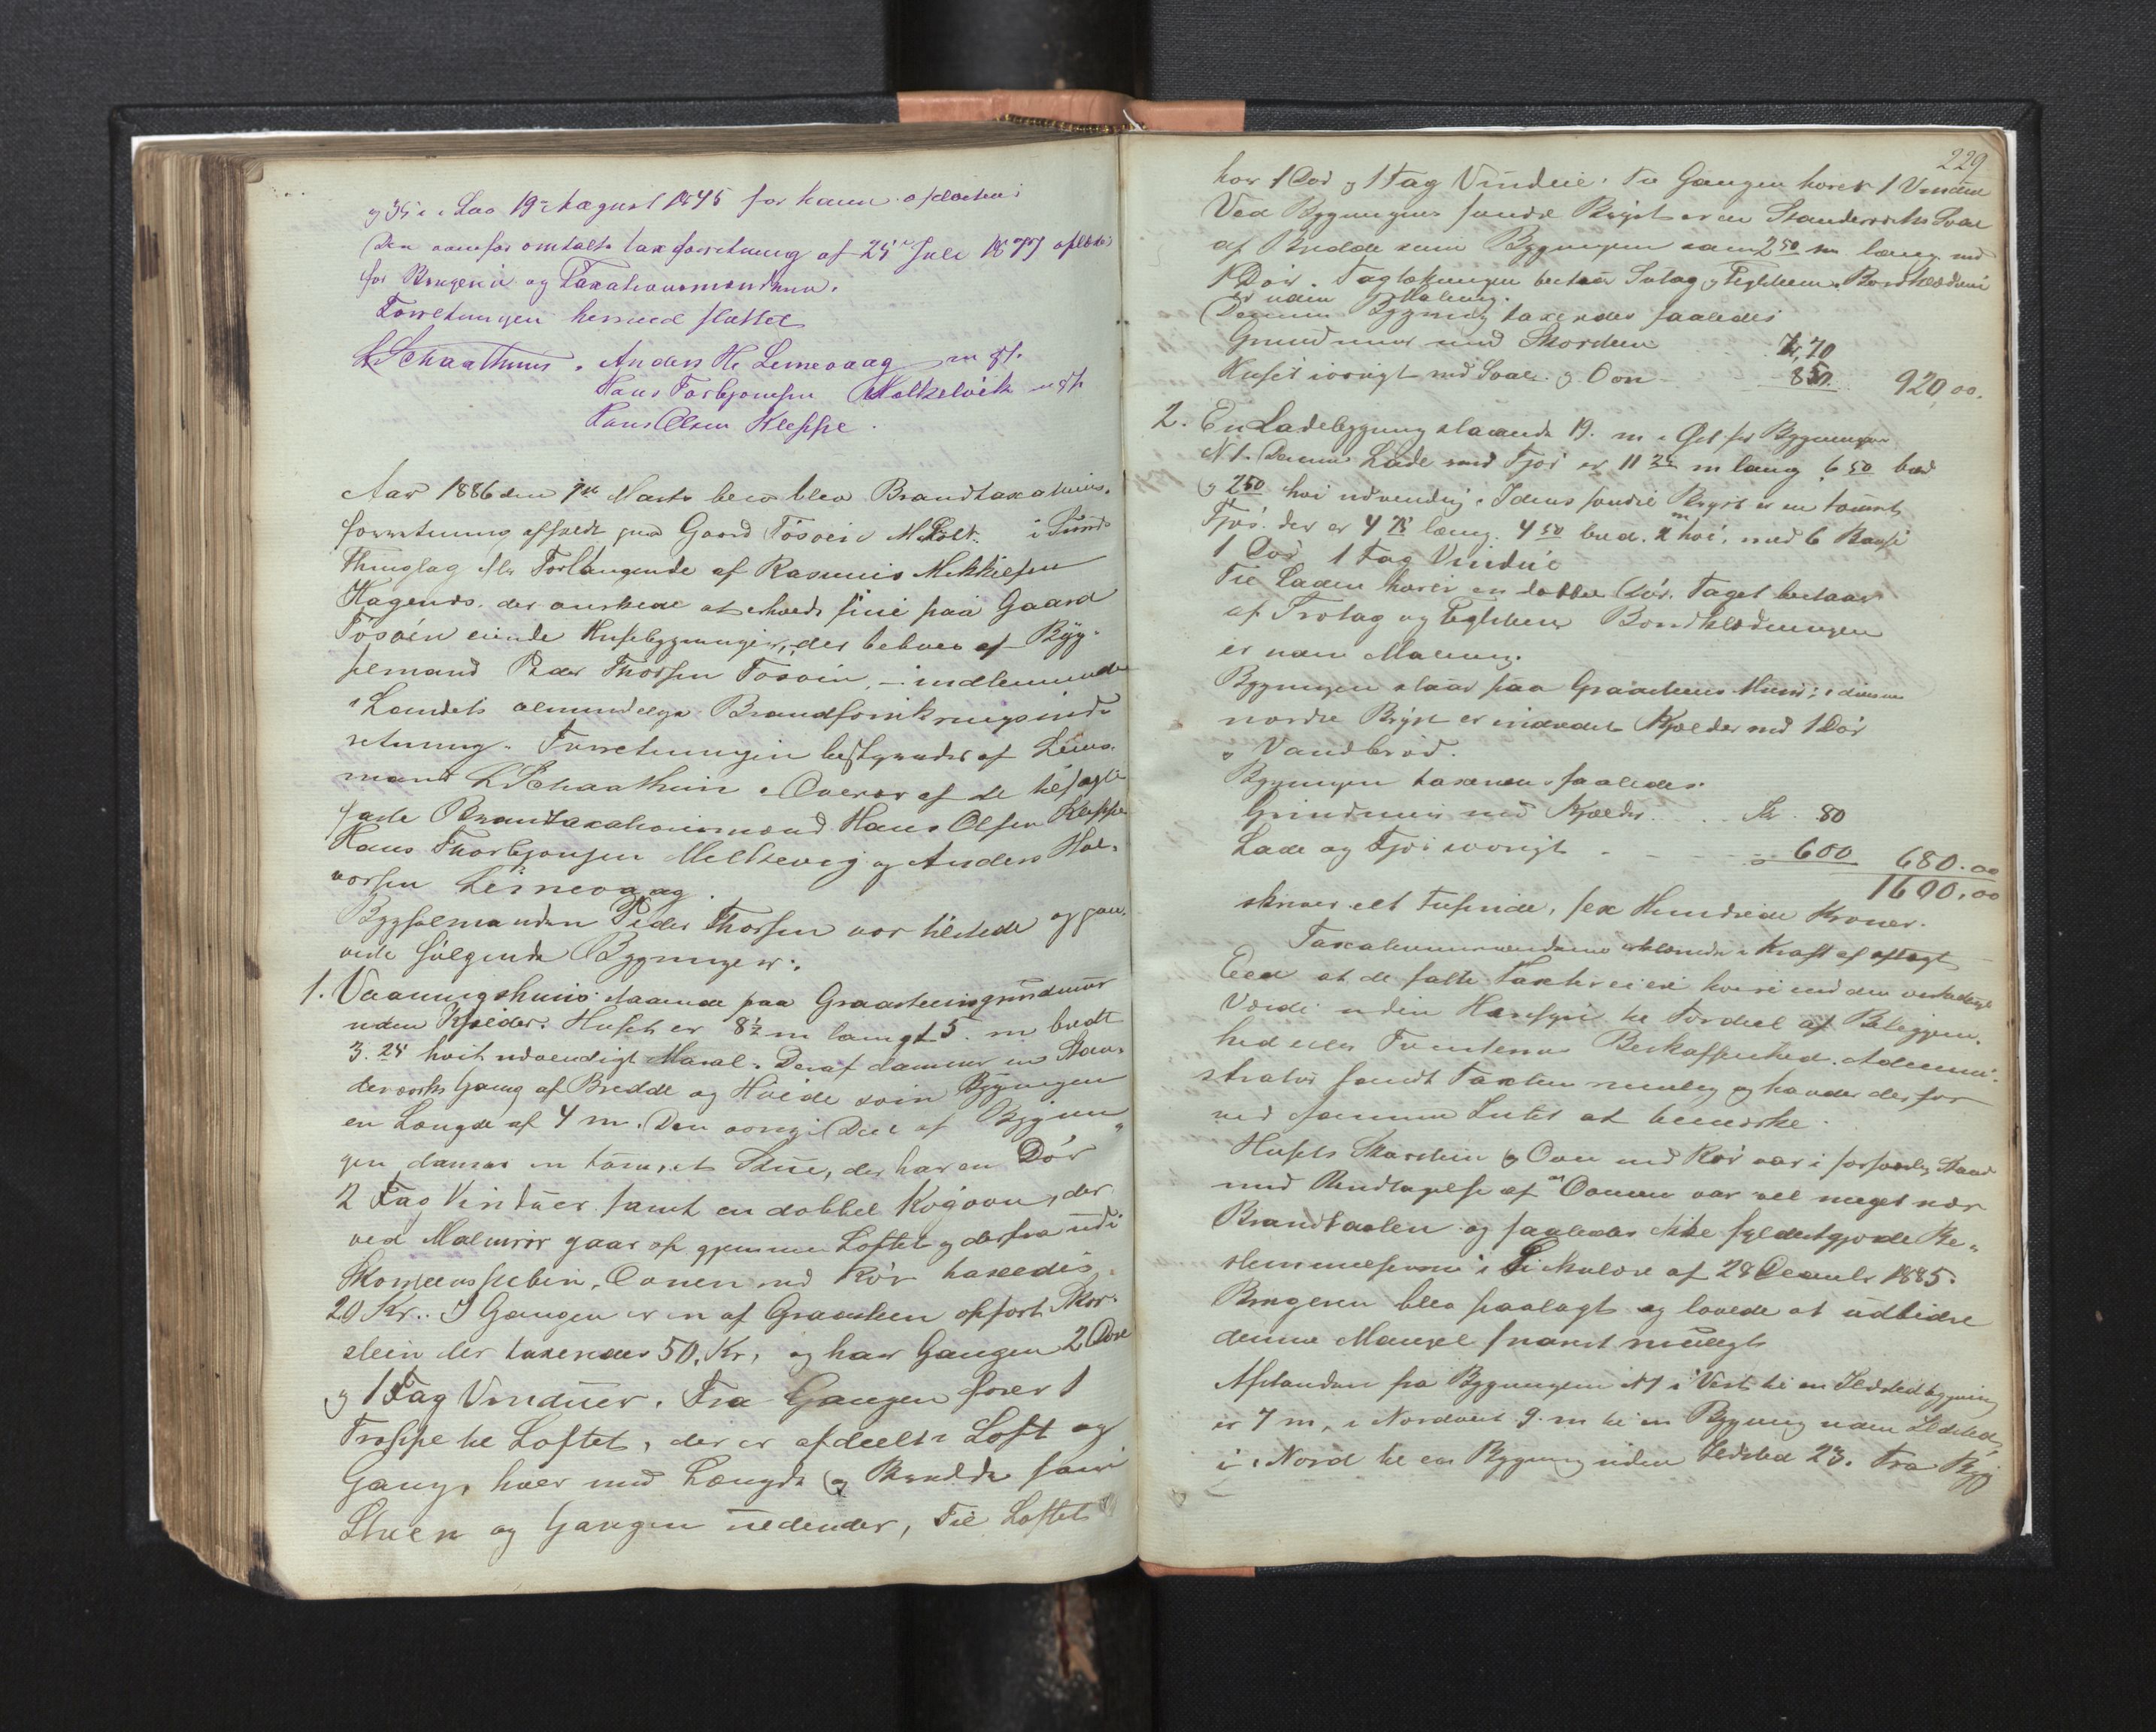 og 35 i Lov 19 August 1845 for ham oplæstes
Den ovenfor omtalte taxforretning af 25 Juli 1877 oplæstes
for Brugeren og Taxationsmændene.
Forretningen hermed sluttet
L Schaathun. Anders H. Lerrevaag m. p. P.
Hans Torbjørnsen Melkelvik m p P
Hans Olsen Kleppe.
Aar 1886 den 9de Marts blev Brandtaxations-
forretning afholdt paa Gaard Tøsøen i Sunds
Thinglag efter Forlangende af Rasmus Mikkelsen
Hagenæs, der ønskede at erholde sine paa Gaard
Tøsøen eiende Husebygninger, der beboes af Byg-
selmand Peder Thorsen Tøsøen, indlemmede
i Landets almindelige Brandforsikringsind-
retning. Forretningen bestyredes af Lens-
mand L Schaathun i Overvær af de tilsagte
faste Brandtaxationsmænd Hans Olsen Kleppe
Hans Thorbjønsen Melkevig og Anders Hal-
vorsen Lerrevaag.
Bygselmanden Peder Thorsen var tilstede og paa-
viste følgende Bygninger:
1. Vaaningshuus staaende paa Graasteensgrundmur
uden Kjelder. Huset er 8½ m langt 5 m bredt
3.25 høit udvendigt Maal. Deraf danner en Stan-
derværks Gang af Bredde og Høide som Bygningen
en Længde af 4 m. Den øvrige Deel af Bygnin-
gen danner en tømret Stue, der har en Dør
2 Fag Vinduer samt en dobbel Kogoven, der
ved Malmrør gaar op gjennem Loftet og derfra ud i
Skorsteenspiben. Ovnen med Rør taxeredes
20 Kr. I Gangen er en af Graasteen opført Skor-
steen der taxeredes 50 Kr, og har Gangen 2 Døre
og 1 Fag Vinduer. Fra Gangen fører 1
Trappe til Loftet, der er afdeelt i Loft og
Gang, hver med Længde og Bredde som
Stuen og Gangen nedenunder, Til Loftet
229
hør 1 Dør og 1 Fag Vindue. Til Gangen hører 1 Vindue
Ved Bygningens søndre Bryst er en Standerværks Sval
af Bredde som Bygningen samt 2 50 m læng med
1 Dør. Tagtækningen bestaar Sutag og Teglsteen. Bordklædningen
er uden Maling.
Denne Bygning taxeredes saaledes
Grundmur med Skorsteen Kr. 70
Huset iøvrigt med Sval og Ovn 850 920,00.
2. En Ladebygning staaende 19 m i Øst for Bygningen
N 1. Denne Lade med Fjøs er 11 25 m lang 6 50 bred
og 2 50 høi udvendig. I dens søndre Bryst er en tømret
Fjøs der er 4 75 læng. 4 50 bred. 2 m høi, med 6 Baase
1 Dør 1 Fag Vindue
Til Laden hører en dobbel Dør. Taget bestaar
af Trotag og Teglsteen Bordklædningen
er uden Maling.
Bygningen staar paa Graasteens Muur; i dennes
nordre Bryst er indredet Kjælder med 1 Dør
og Vandbrød.
Bygningen taxeres saaledes:
Grundmur med Kjælder Kr. 80
Lade og Fjøs iøvrigt 600 680.00
1600,00
skriver eet Tusinde, sex Hundrede Kroner.
Taxationsmændene erklærede i Kraft af aflagt
Eed at de satte Taxter ei ere høiere end den virkelige
Værdi uden Hensyn til Fordeel af Beliggen-
hed eller Tomternes Beskaffenhed. Admini-
strator fandt Taxten rimelig og havde derfor
ved samme Intet at bemærke.
Husets Skorsteen og Ovn med Rør var i forsvarlig Stand
med Undtagelse af at Ovnen var vel meget nær
Brandtavlen og saaledes ikke fyldestgjorde Be-
stemmelserne i Cirkulære af 28 Decembr 1885.
Brugeren blev paalagt og lovede at udbedre
denne Mangel snarest muligt
Afstanden fra Bygningen N 1 i Vest til en Ildstedbygning
er 7 m, i Nordvest 9 m til en Bygning uden Ildsted,
i Nord til en Bygning uden Ildsted 23. Fra Byg